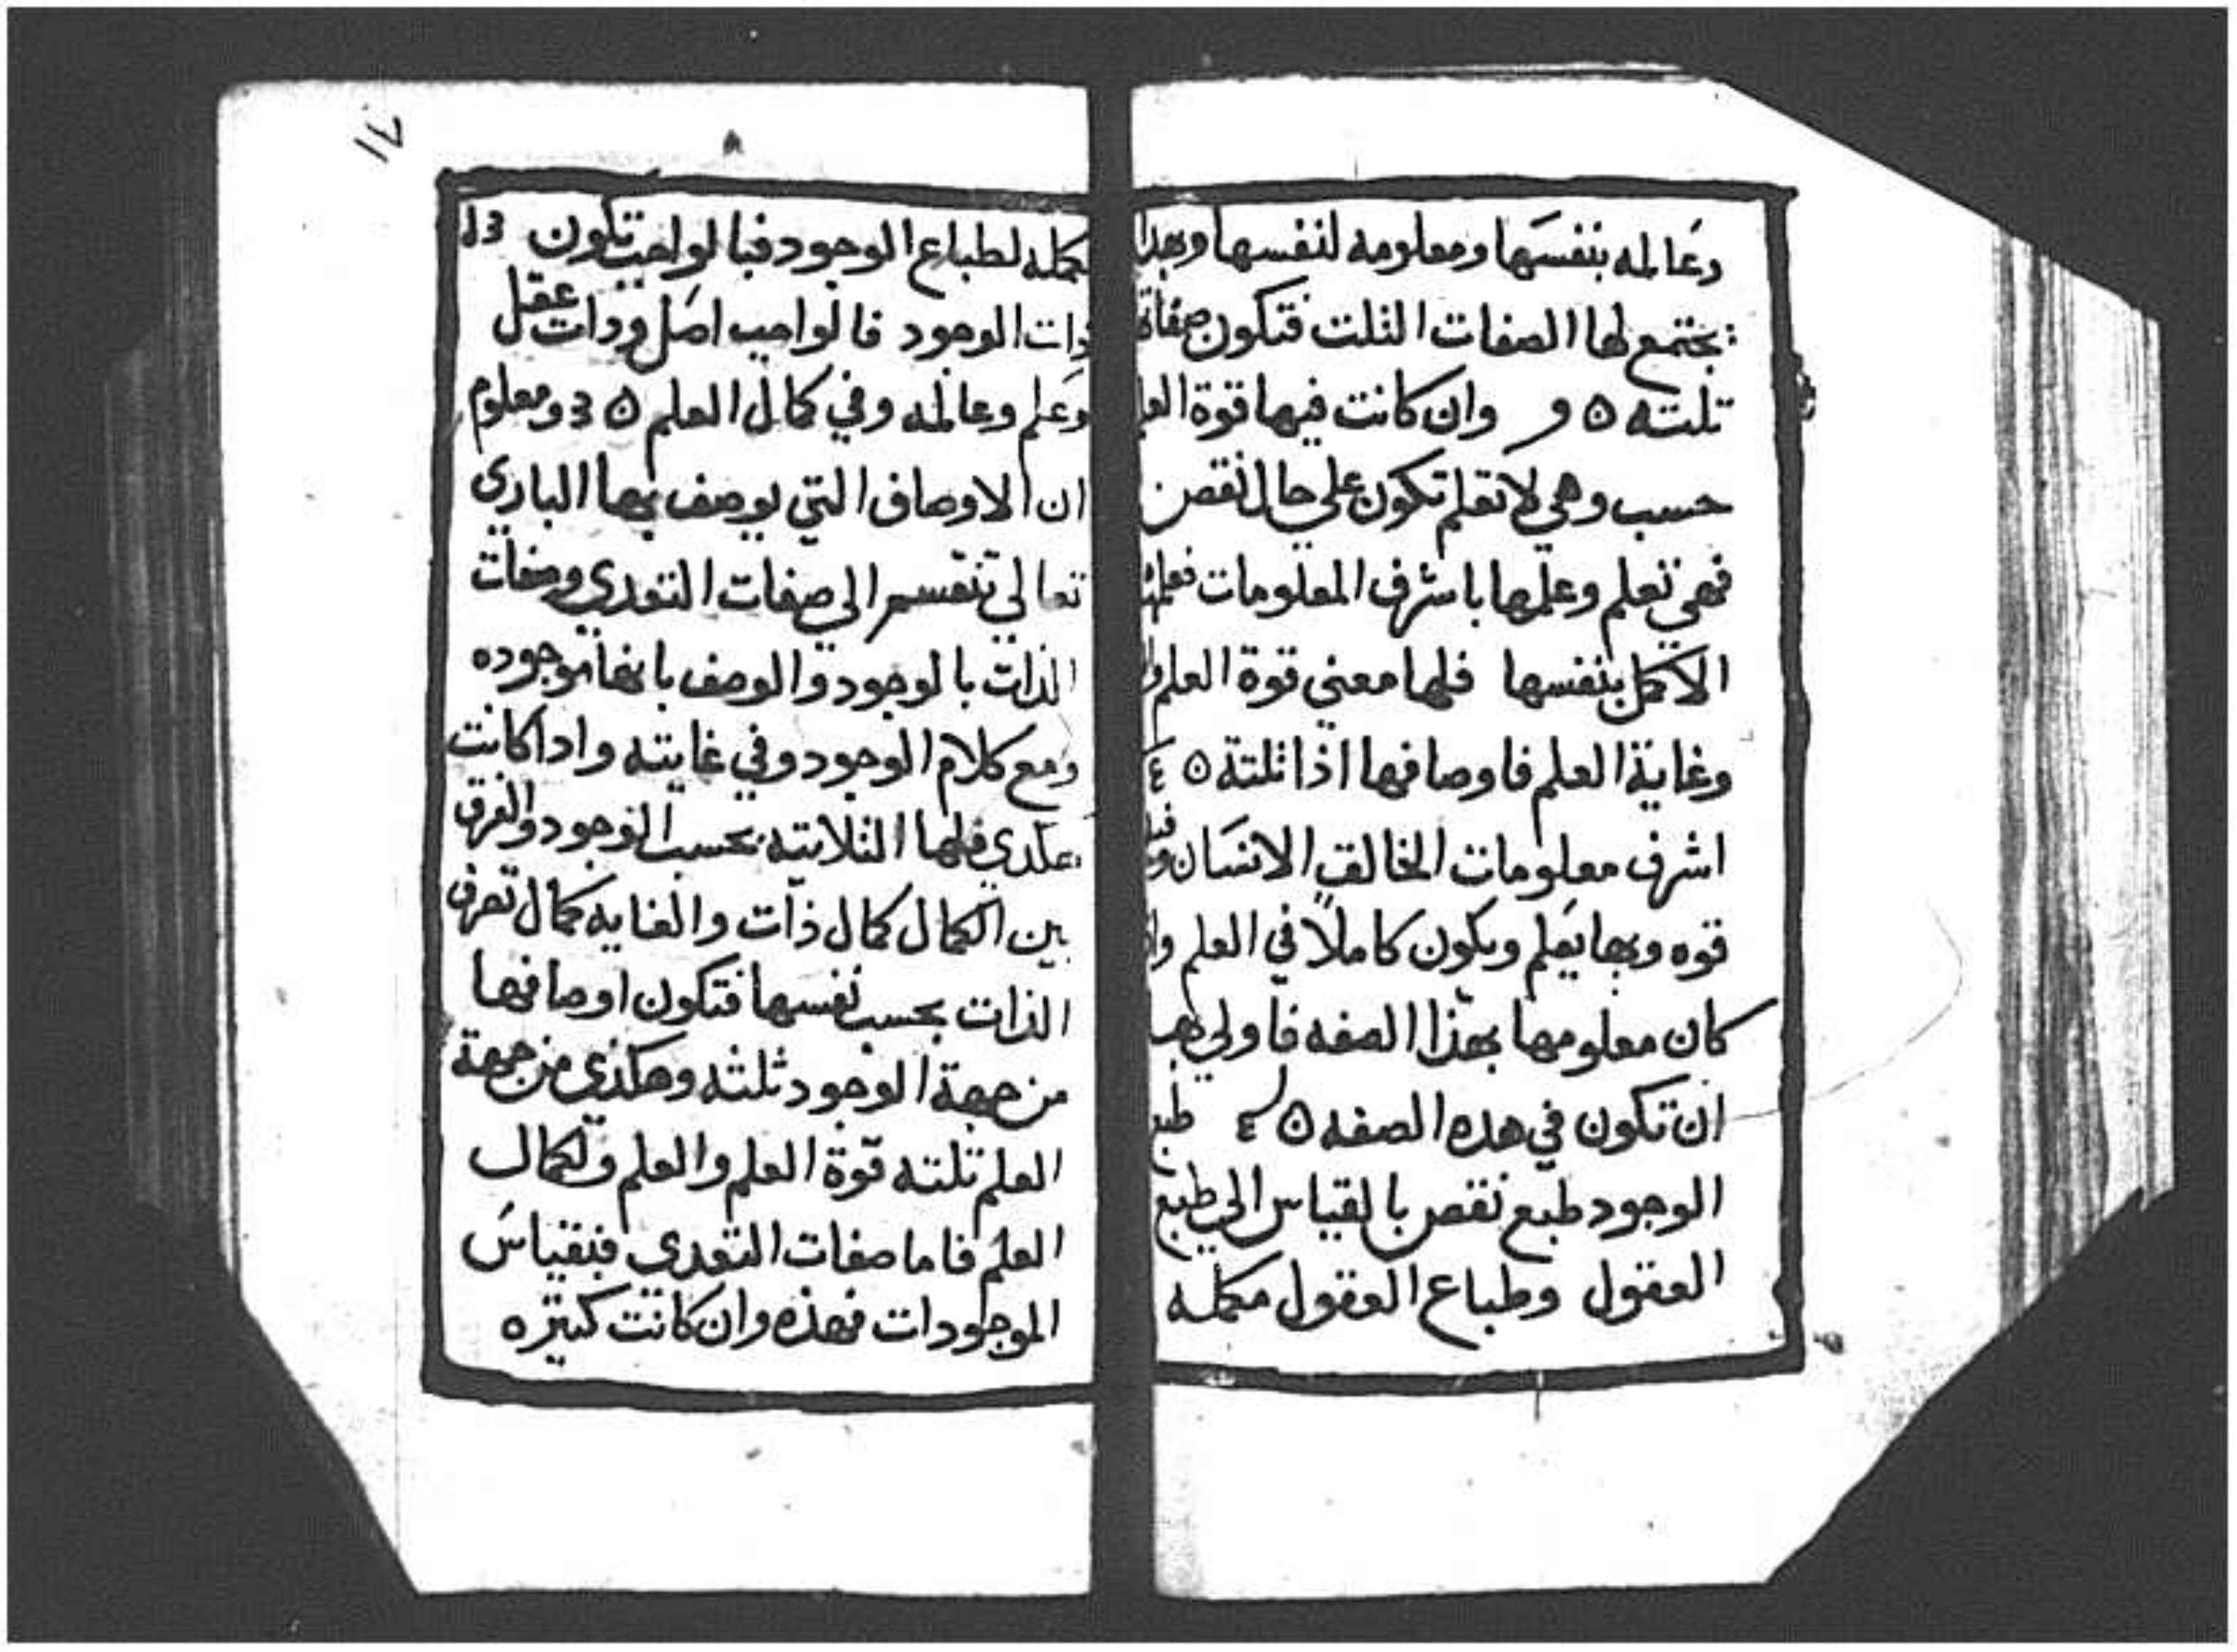 وعالمه بنفسها ومعلومه لنفسها وبهذا
يجتمع لها الصفات الثلت فتكون صفاة
تلته ٥ و وان كانت فيها قوة العلم
حسب وهي لا تعلم تكون علي حال نقص
فهي تعلم وعلمها باشرف المعلومات فعلمها
الاكمل بنفسها فلها معني قوة العلم
وغاية العلم فاوصافها اذا تلتة ٥ ٤
اشرف معلومات الخالق الانسان
قوه وبها يعلم ويكون كاملًا في العلم
كان معلومها بهذا الصفه فاولي بها
ان تكون في هده الصفه ٥ ٤ طبع
الوجود طبع نقص بالقياس الي طبع
العقول وطباع العقول مكمله
مكمله لطباع الوجود فبالواجب تكون
ذات الوجود فالواجب اصل ودات عقل
وعلم وعالمه وفي كمال العلم ٥ ومعلوم
ان الاوصاف التي يوصف بها الباري
تعالي تنقسم الي صفات التعدي وصفات
الذات بالوجود والوصف بانها موجوده
ومع كلام الوجود وفي غايته وادا كانت
هكدي فلها الثلاثيه بحسب الوجود والفرق
بين الكمال كمال ذات والغايه كمال تعرف
الذات بحسب نفسها فتكون اوصافها
من جهة الوجود ثلثه وهكذي من جهة
العلم تلته قوة العلم والعلم وكمال
العلم فاما صفات التعدي فبقياس
الموجودات فهذه وان كانت كتيره